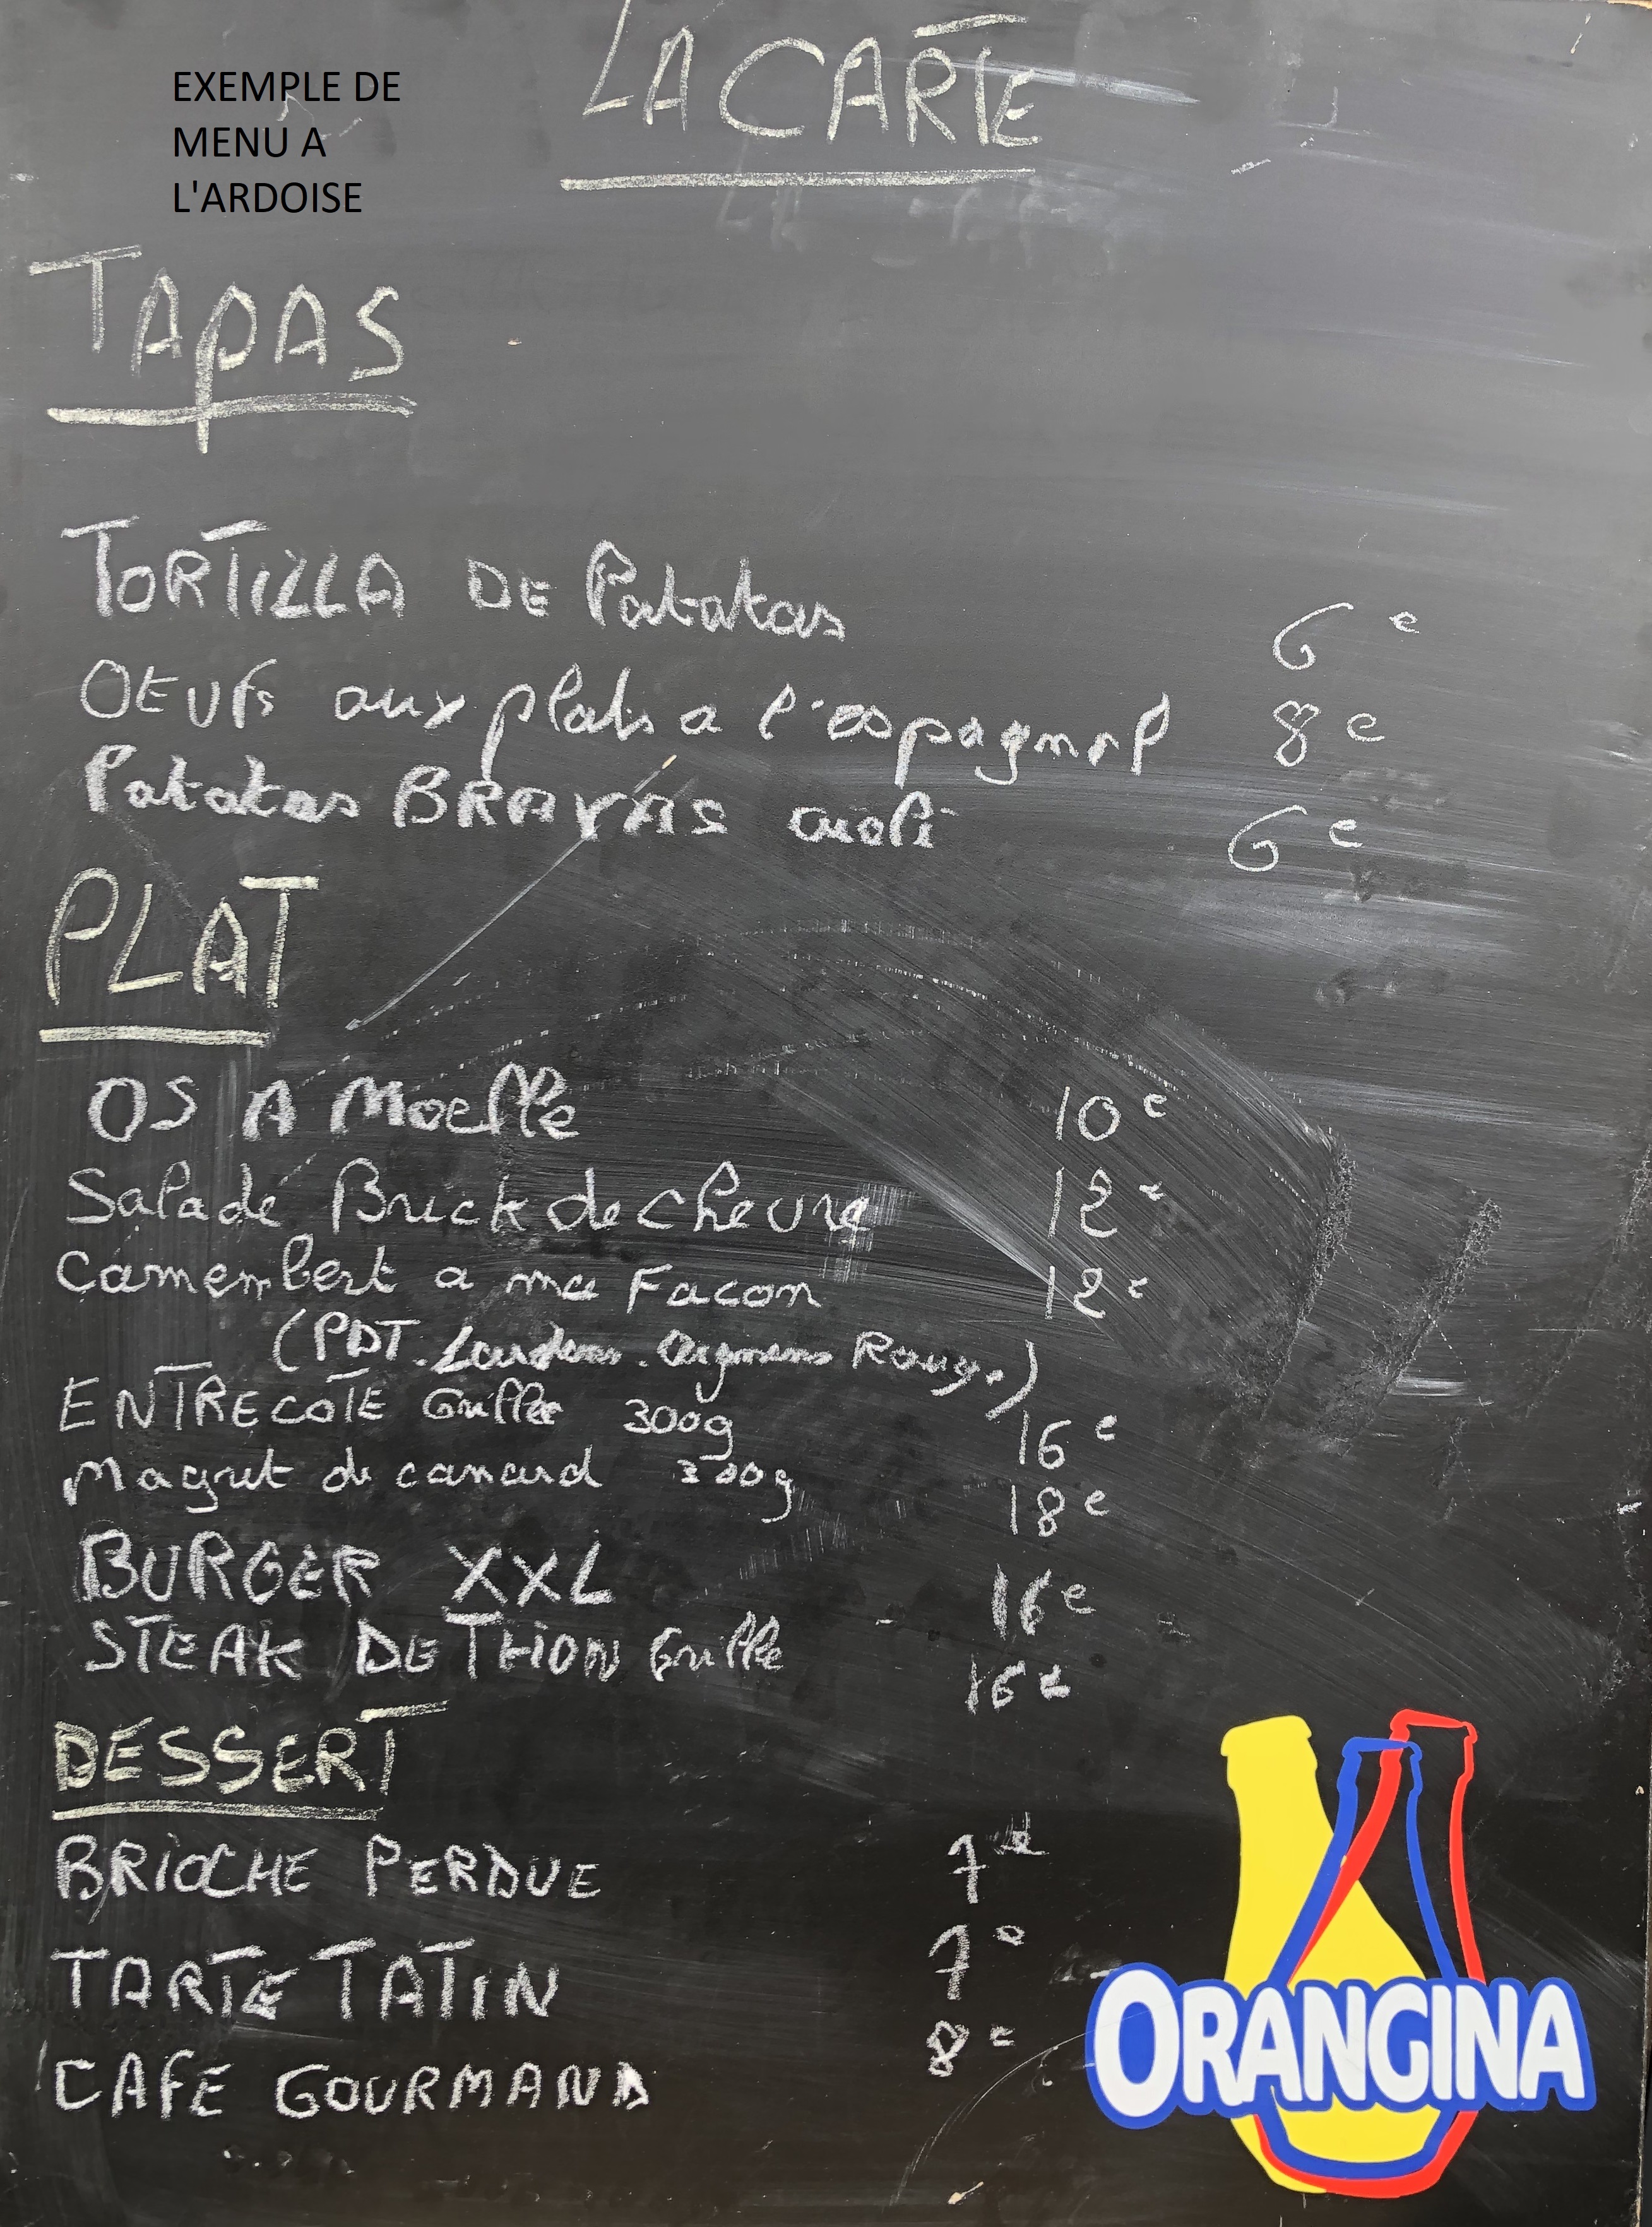 EXEMPLE DE
MENU A
L'ARDOISE
LA CARTE
TAPAS
TORTILLA DE Patatas 6 e
OEUFs aux plats a l'espagnol 8 e
Patatas BRAVAS aioli 6 e
PLAT
OS A Moelle 10 e
Salade Brick de chevre 12 e
Camembert a ma Facon 12 e
(PDT. Lardons. Oignons Rouge.)
ENTRECOTE Grille 300g 16 e
Magret de canard 300g 18 e
BURGER XXL 16 e
STEAK DE THON Grille 16 e
DESSERT
BRiOCHE PERDUE 7 e
TARTE TATIN 7 e
CAFE GOURMAND 8 e
ORANGINA